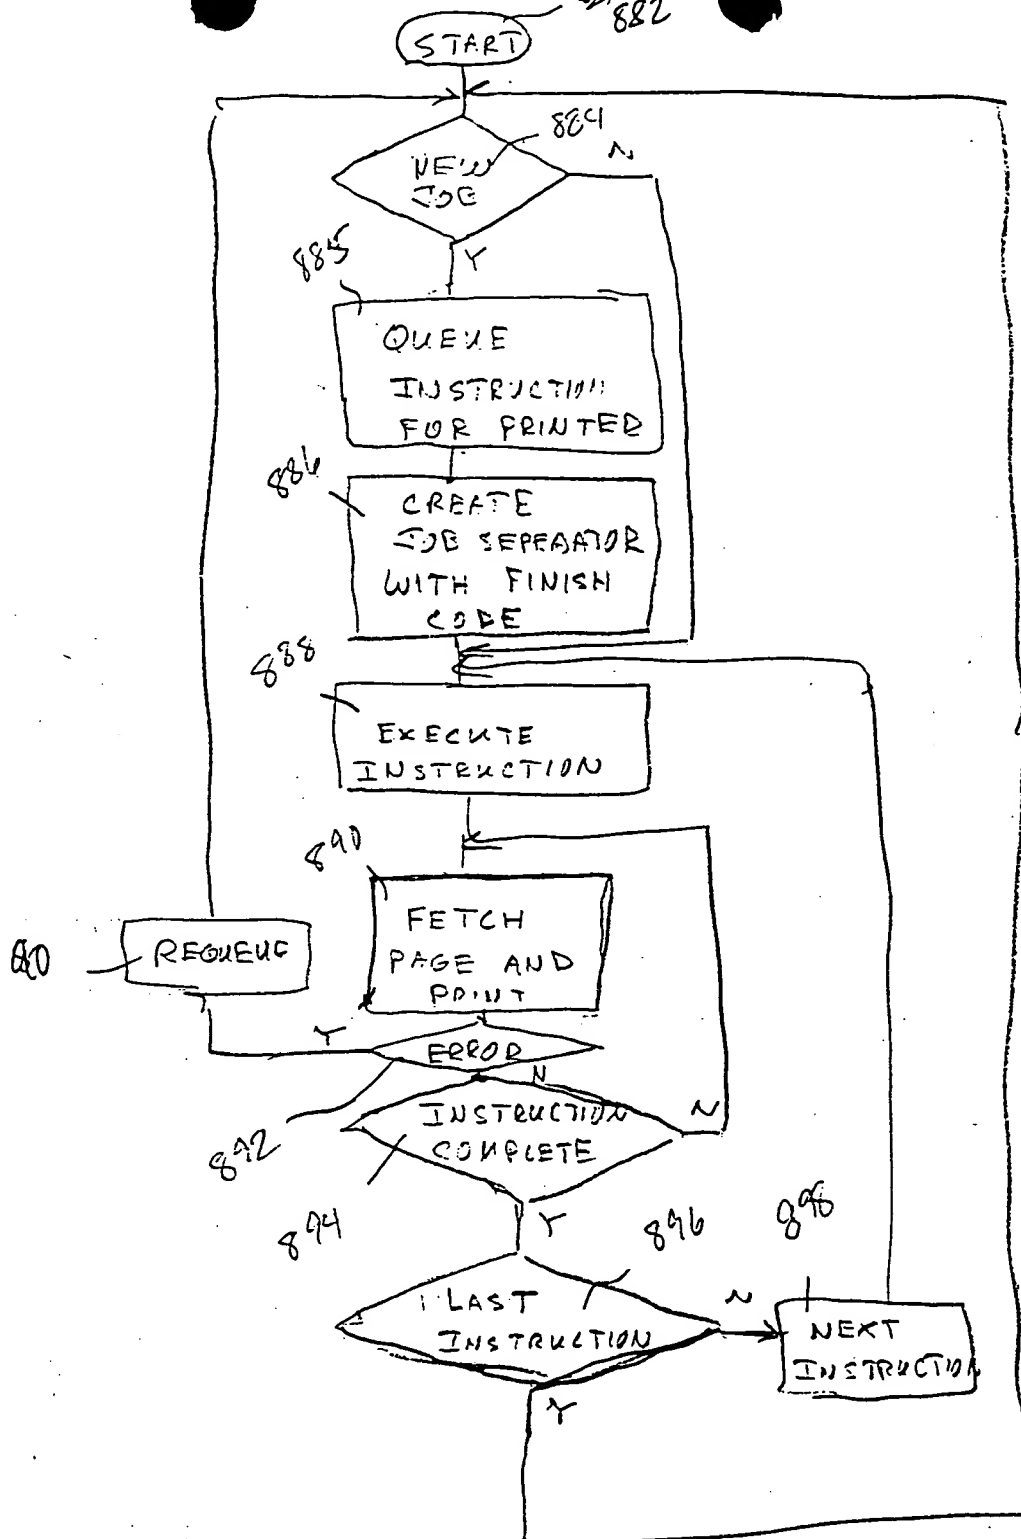 882
START
884
N
NEW
JOB
Y
885
QUEUE
INSTRUCTION
FOR PRINTER
886
CREATE
JOB SEPERATOR
WITH FINISH
CODE
888
EXECUTE
INSTRUCTION
890
FETCH
PAGE AND
PRINT
REQUEUE
Y
ERROR
N
INSTRUCTION
COMPLETE
N
892
894
Y
896
898
LAST
INSTRUCTION
N
NEXT
INSTRUCTION
Y